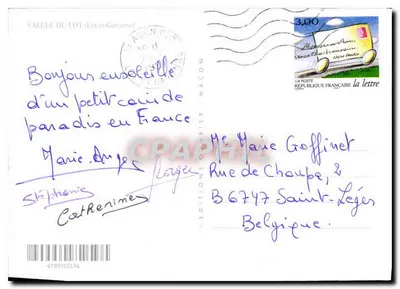 VALLEE DU LOT (Lot-et-Garonne)
Bonjour ensoleillé
d'un petit coin de
paradis en France
Marie-Ange
Stéphanie
Catherine
EDITIONS COMBIER MACON
3,00
LA POSTE
REPUBLIQUE FRANÇAISE
la lettre
Me Marie Goffinet
Rue de Choupe, 2
B 6747 Saint-Léger
Belgique.
CPAPHIL